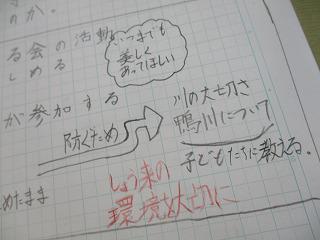 のか。
る会の活動
しめる
いつまでも
美しく
あってほしい
が参加する
防ぐため
川の大切さ
鴨川について
子どもたちに教える。
めたまま
しょう来の
環境を大切に